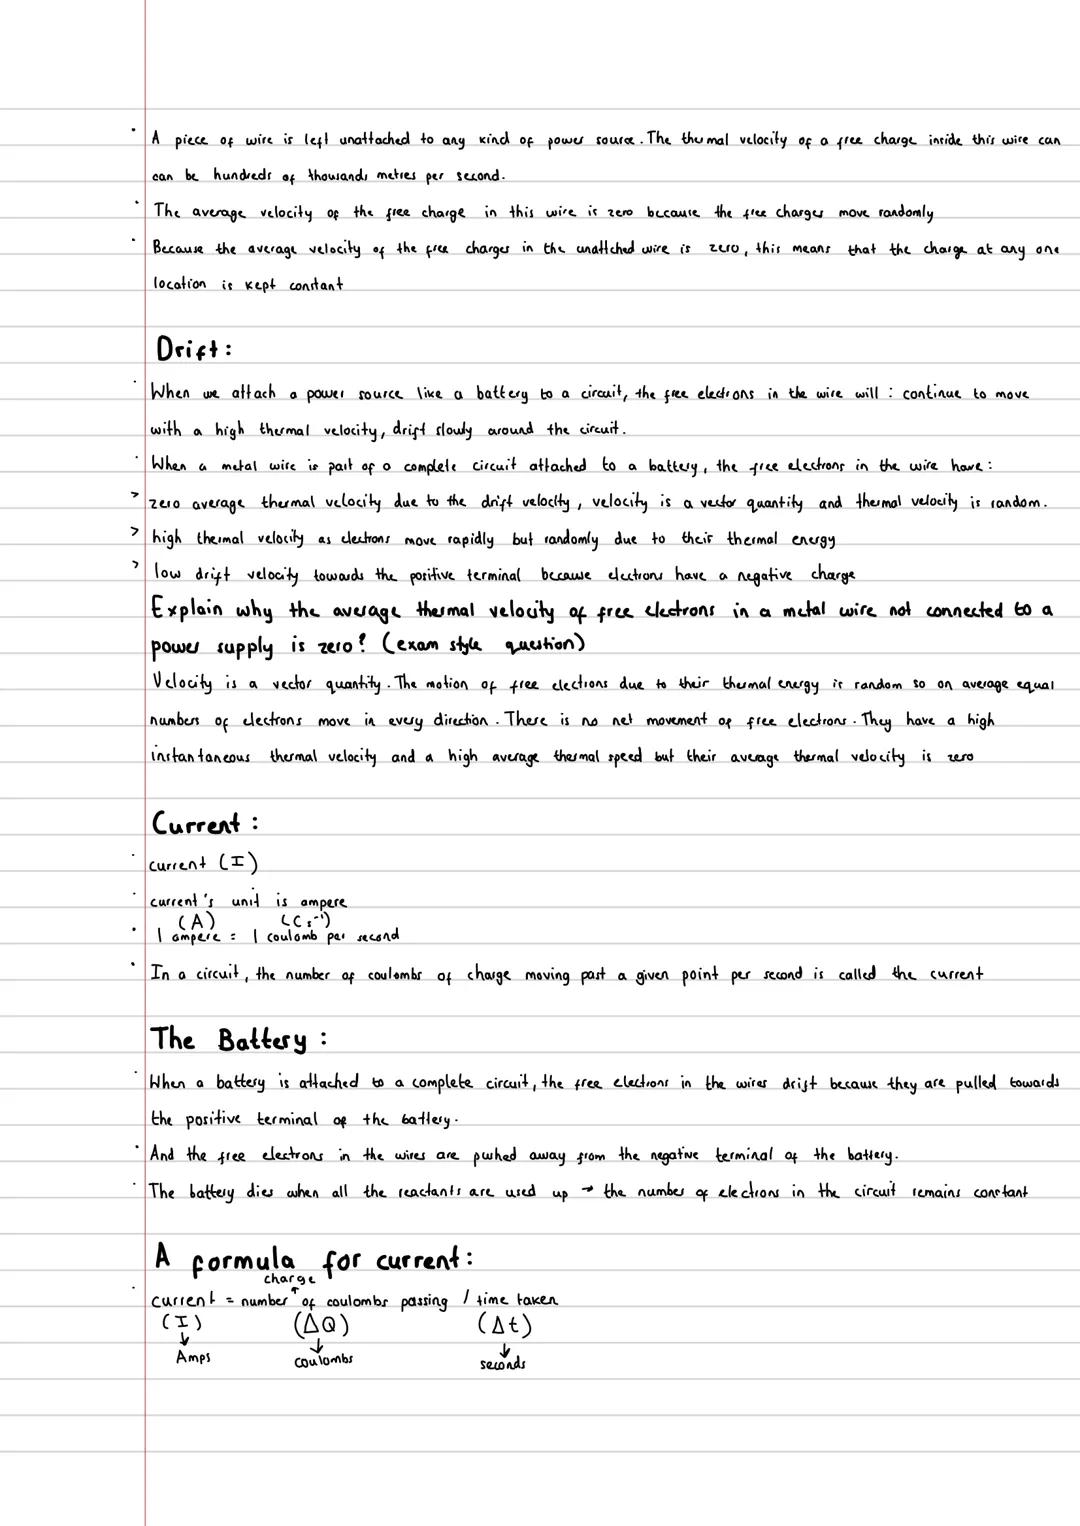 · A piece of wire is left unattached to any kind of power source. The thermal velocity of a free charge inside this wire can
can be hundreds of thousands metres per second.
· The average velocity of the free charge in this wire is zero because the free charges move randomly
· Because the average velocity of the free charges in the unattched wire is zero, this means that the charge at any one
location is kept constant
Drift:
· When we attach a power source like a battery to a circuit, the free electrons in the wire will : continue to move
with a high thermal velocity, drift slowly around the circuit.
· When a metal wire is part of a complete circuit attached to a battery, the free electrons in the wire have:
> zero average thermal velocity due to the drift velocity, velocity is a vector quantity and thermal velocity is random.
> high thermal velocity as electrons move rapidly but randomly due to their thermal energy
> low drift velocity towards the positive terminal because electrons have a negative charge
Explain why the average thermal velocity of free electrons in a metal wire not connected to a
power supply is zero? (exam style question)
Velocity is a vector quantity. The motion of free electrons due to their thermal energy is random so on average equal
numbers of electrons move in every direction. There is no net movement of free electrons. They have a high
instantaneous thermal velocity and a high average thermal speed but their average thermal velocity is zero
Current:
· current (I)
· current's unit is ampere
(A) (Cs⁻¹)
· 1 ampere = 1 coulomb per second
· In a circuit, the number of coulombs of charge moving past a given point per second is called the current
The Battery:
· When a battery is attached to a complete circuit, the free electrons in the wires drift because they are pulled towards
the positive terminal of the battery.
· And the free electrons in the wires are pushed away from the negative terminal of the battery.
· The battery dies when all the reactants are used up → the number of electrons in the circuit remains constant
A formula for current:
charge
↑
· current = number of coulombs passing / time taken
(I) (ΔQ) (Δt)
↓ ↓ ↓
Amps coulombs seconds